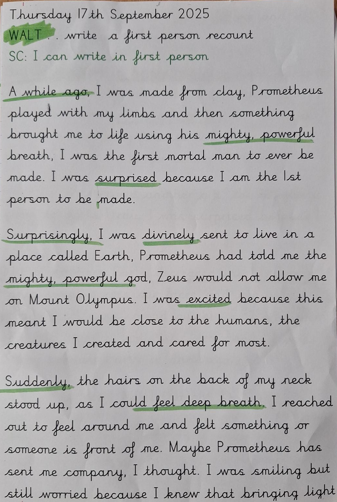 Thursday 17th September 2025
WALT: write a first person recount
SC: I can write in first person
A while ago, I was made from clay, Prometheus
played with my limbs and then something
brought me to life using his mighty, powerful
breath, I was the first mortal man to ever be
made. I was surprised because I am the 1st
person to be made.
Surprisingly, I was divinely sent to live in a
place called Earth, Prometheus had told me the
mighty, powerful god, Zeus would not allow me
on Mount Olympus. I was excited because this
meant I would be close to the humans, the
creatures I created and cared for most.
Suddenly, the hairs on the back of my neck
stood up, as I could feel deep breath. I reached
out to feel around me and felt something or
someone is front of me. Maybe Prometheus has
sent me company, I thought. I was smiling but
still worried because I knew that bringing light